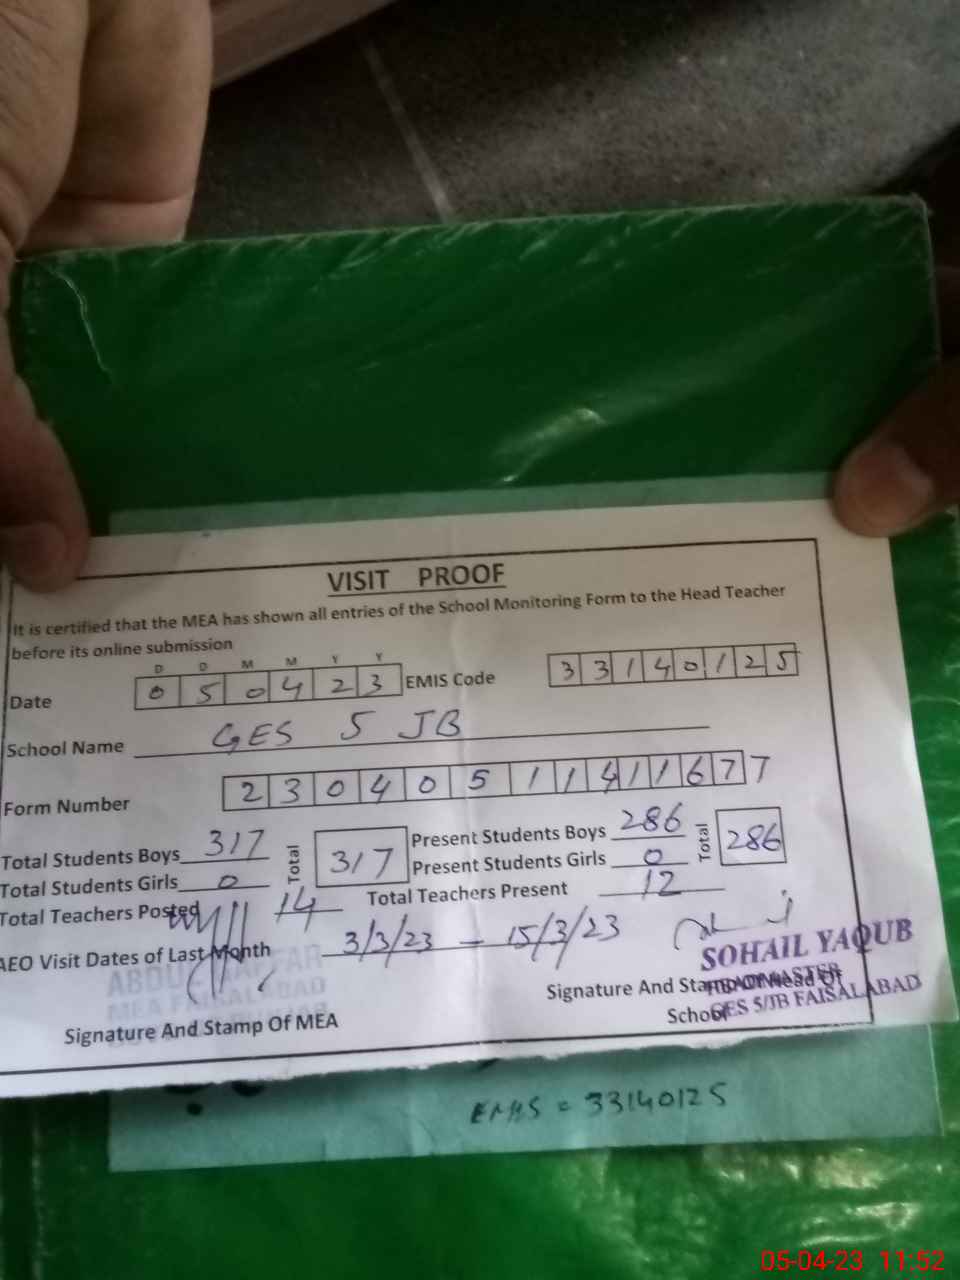 VISIT PROOF
It is certified that the MEA has shown all entries of the School Monitoring Form to the Head Teacher
before its online submission
D D M M Y Y
Date 0 5 0 4 2 3 EMIS Code 3 3 1 4 0 1 2 5
School Name GES 5 JB
Form Number 2 3 0 4 0 5 1 1 4 1 1 6 7 7
Total Students Boys 317 Total 317 Present Students Boys 286 Total 286
Total Students Girls 0 Present Students Girls 0
Total Teachers Posted 14 Total Teachers Present 12
AEO Visit Dates of Last Month 3/3/23 – 15/3/23
SOHAIL YAQUB
HEADMASTER
GES 5/JB FAISALABAD
Signature And Stamp Of Head Of
School
MEA FAISALABAD
Signature And Stamp Of MEA
EMIS = 33140125
05-04-23 11:52